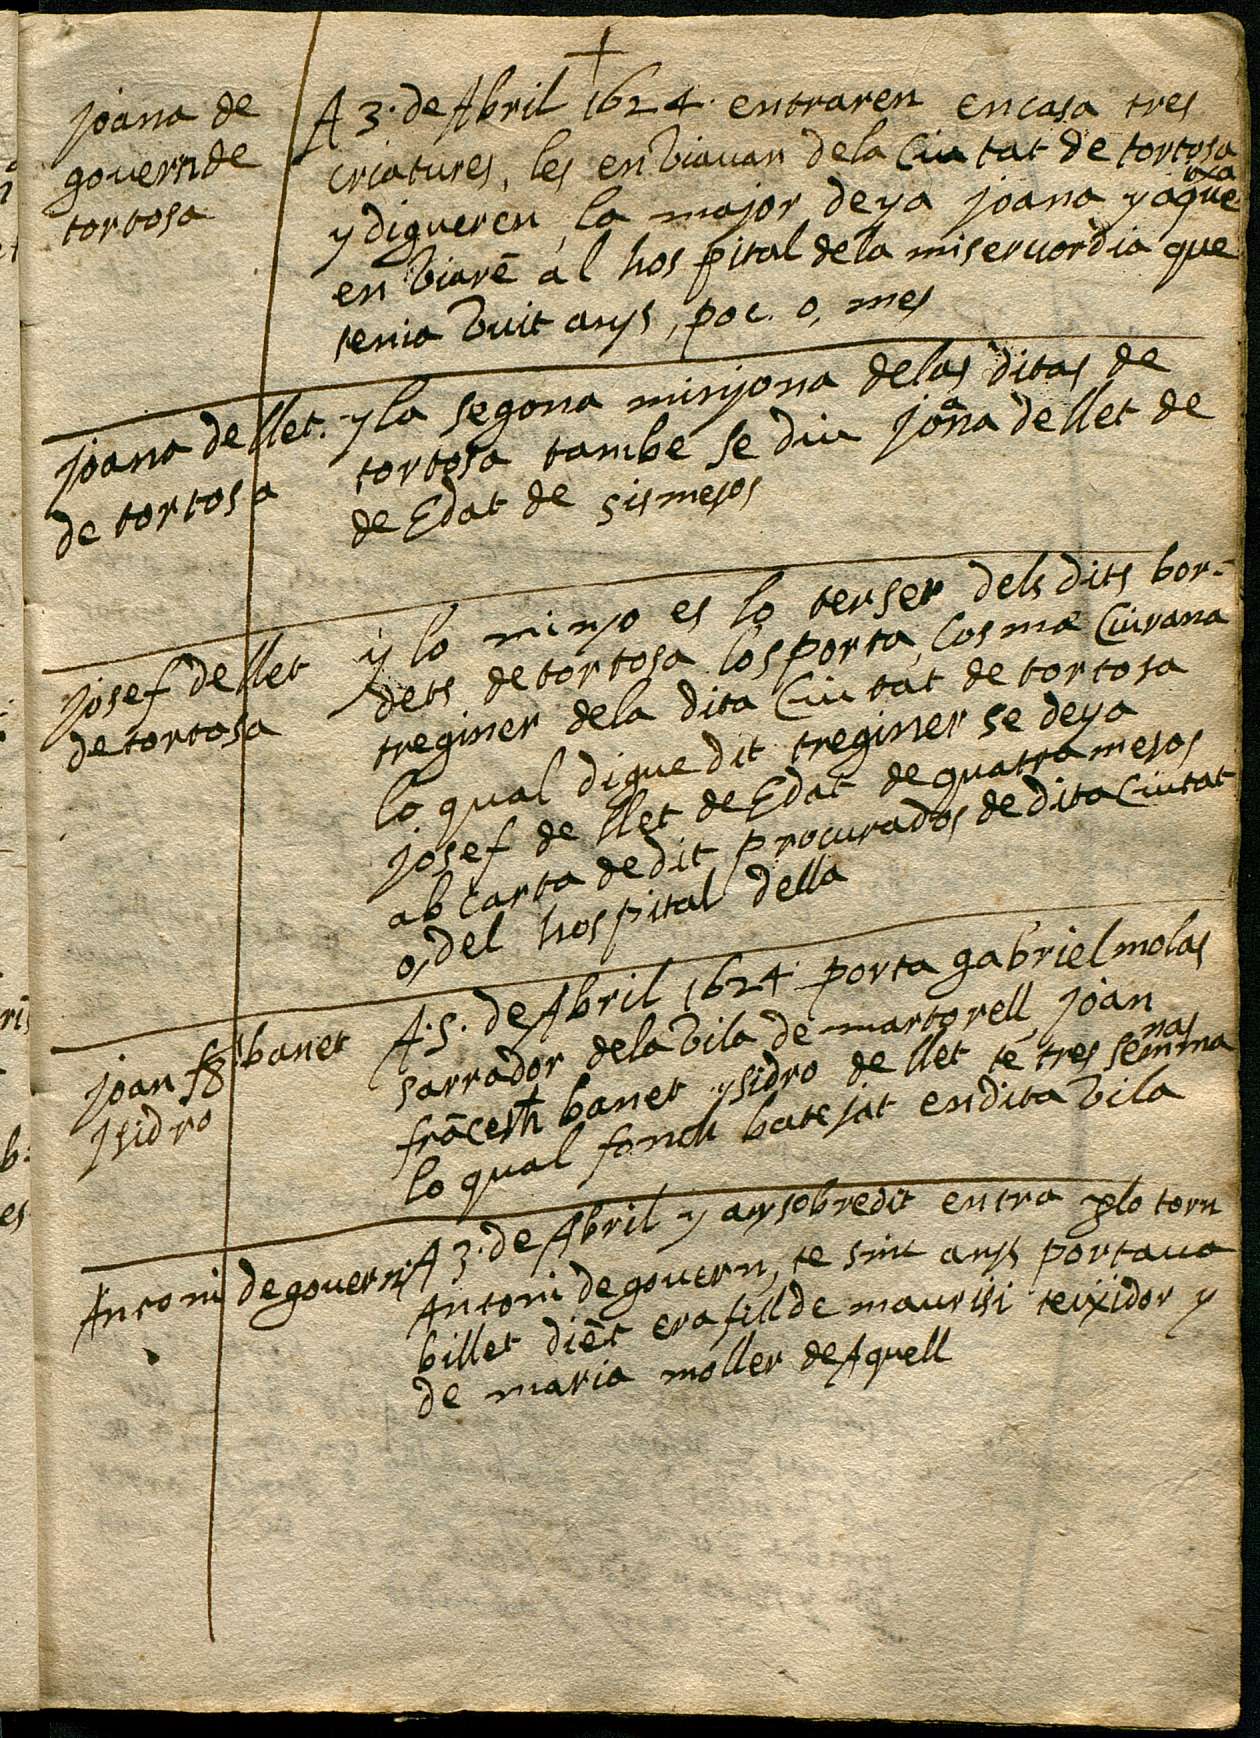 +
joana de
govern de
tortosa
A 3. de Abril 1624. entraren en casa tres
criatures, les enviavan de la Ciutat de tortosa
y digueren, la major deya joana y aque
exa
enviarē al hospital de la miseruordia que
tenia vuit anys, poc. o, mes
joana de llet.
de tortosa
y la segona minyona de las ditas de
tortosa tambe se diu joana de llet de
de Edat de sis mesos
josef de llet
de tortosa
y lo minyo es lo terser dels dits bor-
dets de tortosa los porta, Cosme Ciurana
treginer de la dita Ciutat de tortosa
lo qual digue dit treginer se deya
josef de llet de Edat de quatra mesos
ab carta de dit procurados de dita Ciutat
o, del hospital della
joan banet
jsidro
A. 5. de Abril 1624. porta gabriel molas
sarrador de la vila de martorell, joan
frācesch banet ysidro de llet te tres semma
nas
lo qual fonch batejat en dita vila
Antoni de govern
A 3. de Abril y any sobredit entra p lo torn
Antoni de govern, te sinc anys portava
billet diēt era fill de maurisi teixidor y
de maria moller de Aquell